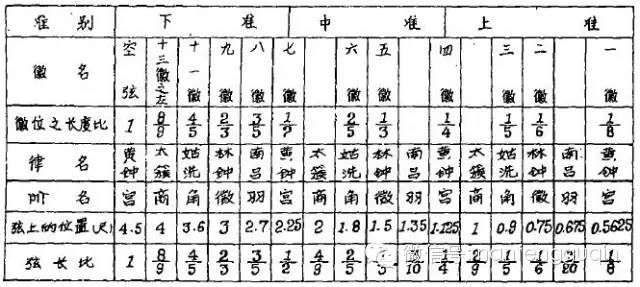 准别 下准 中准 上准
徽名 空弦 十三徽之左 十一徽 九徽 八徽 七徽 六徽 五徽 四徽 三徽 二徽 一徽
徽位之长度比 1 8/9 4/5 2/3 3/5 1/2 2/5 1/3 1/4 1/5 1/6 1/8
律名 黄钟 太簇 姑洗 林钟 南吕 黄钟 太簇 姑洗 林钟 南吕 黄钟 太簇 姑洗 林钟 南吕 黄钟
阶名 宫 商 角 徵 羽 宫 商 角 徵 羽 宫 商 角 徵 羽 宫
弦上的位置(尺) 4.5 4 3.6 3 2.7 2.25 2 1.8 1.5 1.35 1.125 1 0.9 0.75 0.675 0.5625
弦长比 1 8/9 4/5 2/3 3/5 1/2 4/9 2/5 1/3 3/10 1/4 2/9 1/5 1/6 3/20 1/8
微信号